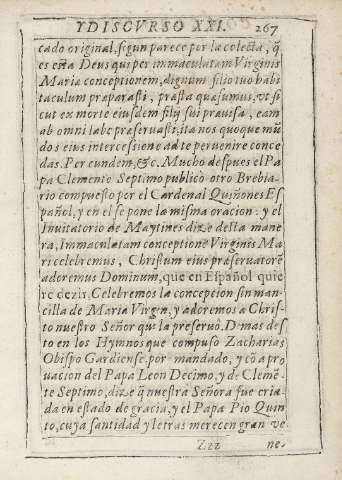 Y DISCVRSO XXI. 267
cado original, segun parece por la colecta, q̃
es esta Deus qui per immaculatam Virginis
Mariæ conceptionem, dignum filio tuo habi
taculum præparasti, præsta quæsumus, vt si
cut ex morte eiusdem filij sui præuisa, eam
ab omni labe præseruasti, ita nos quoque mũ
dos eius intercessione ad te peruenire conce
das. Per eundem, &c. Mucho despues el Pa
pa Clemente Septimo publicò otro Brebia-
rio compuesto por el Cardenal Quiñones Es
pañol, y en el se pone la misma oracion: y el
Inuitatorio de Maytines dize desta mane
ra, Immaculatam conceptionẽ Virginis Ma
ri celebremus, Christum eius præseruatorẽ
adoremus Dominum, que en Español quie
re dezir, Celebremos la concepcion sin man-
cilla de Maria Virgen, y adoremos a Chris-
to nuestro Señor que la preseruò. Demas des
to en los Hymnos que compuso Zacharias
Obispo Gardiense, por mandado, y cõ a pro
uacion del Papa Leon Decimo, y de Clemẽ-
te Septimo, dize q̃ nuestra Señora fue cria-
da en estado de gracia, y el Papa Pio Quin
to, cuya santidad y letras merecen gran ve
Zzz ne-